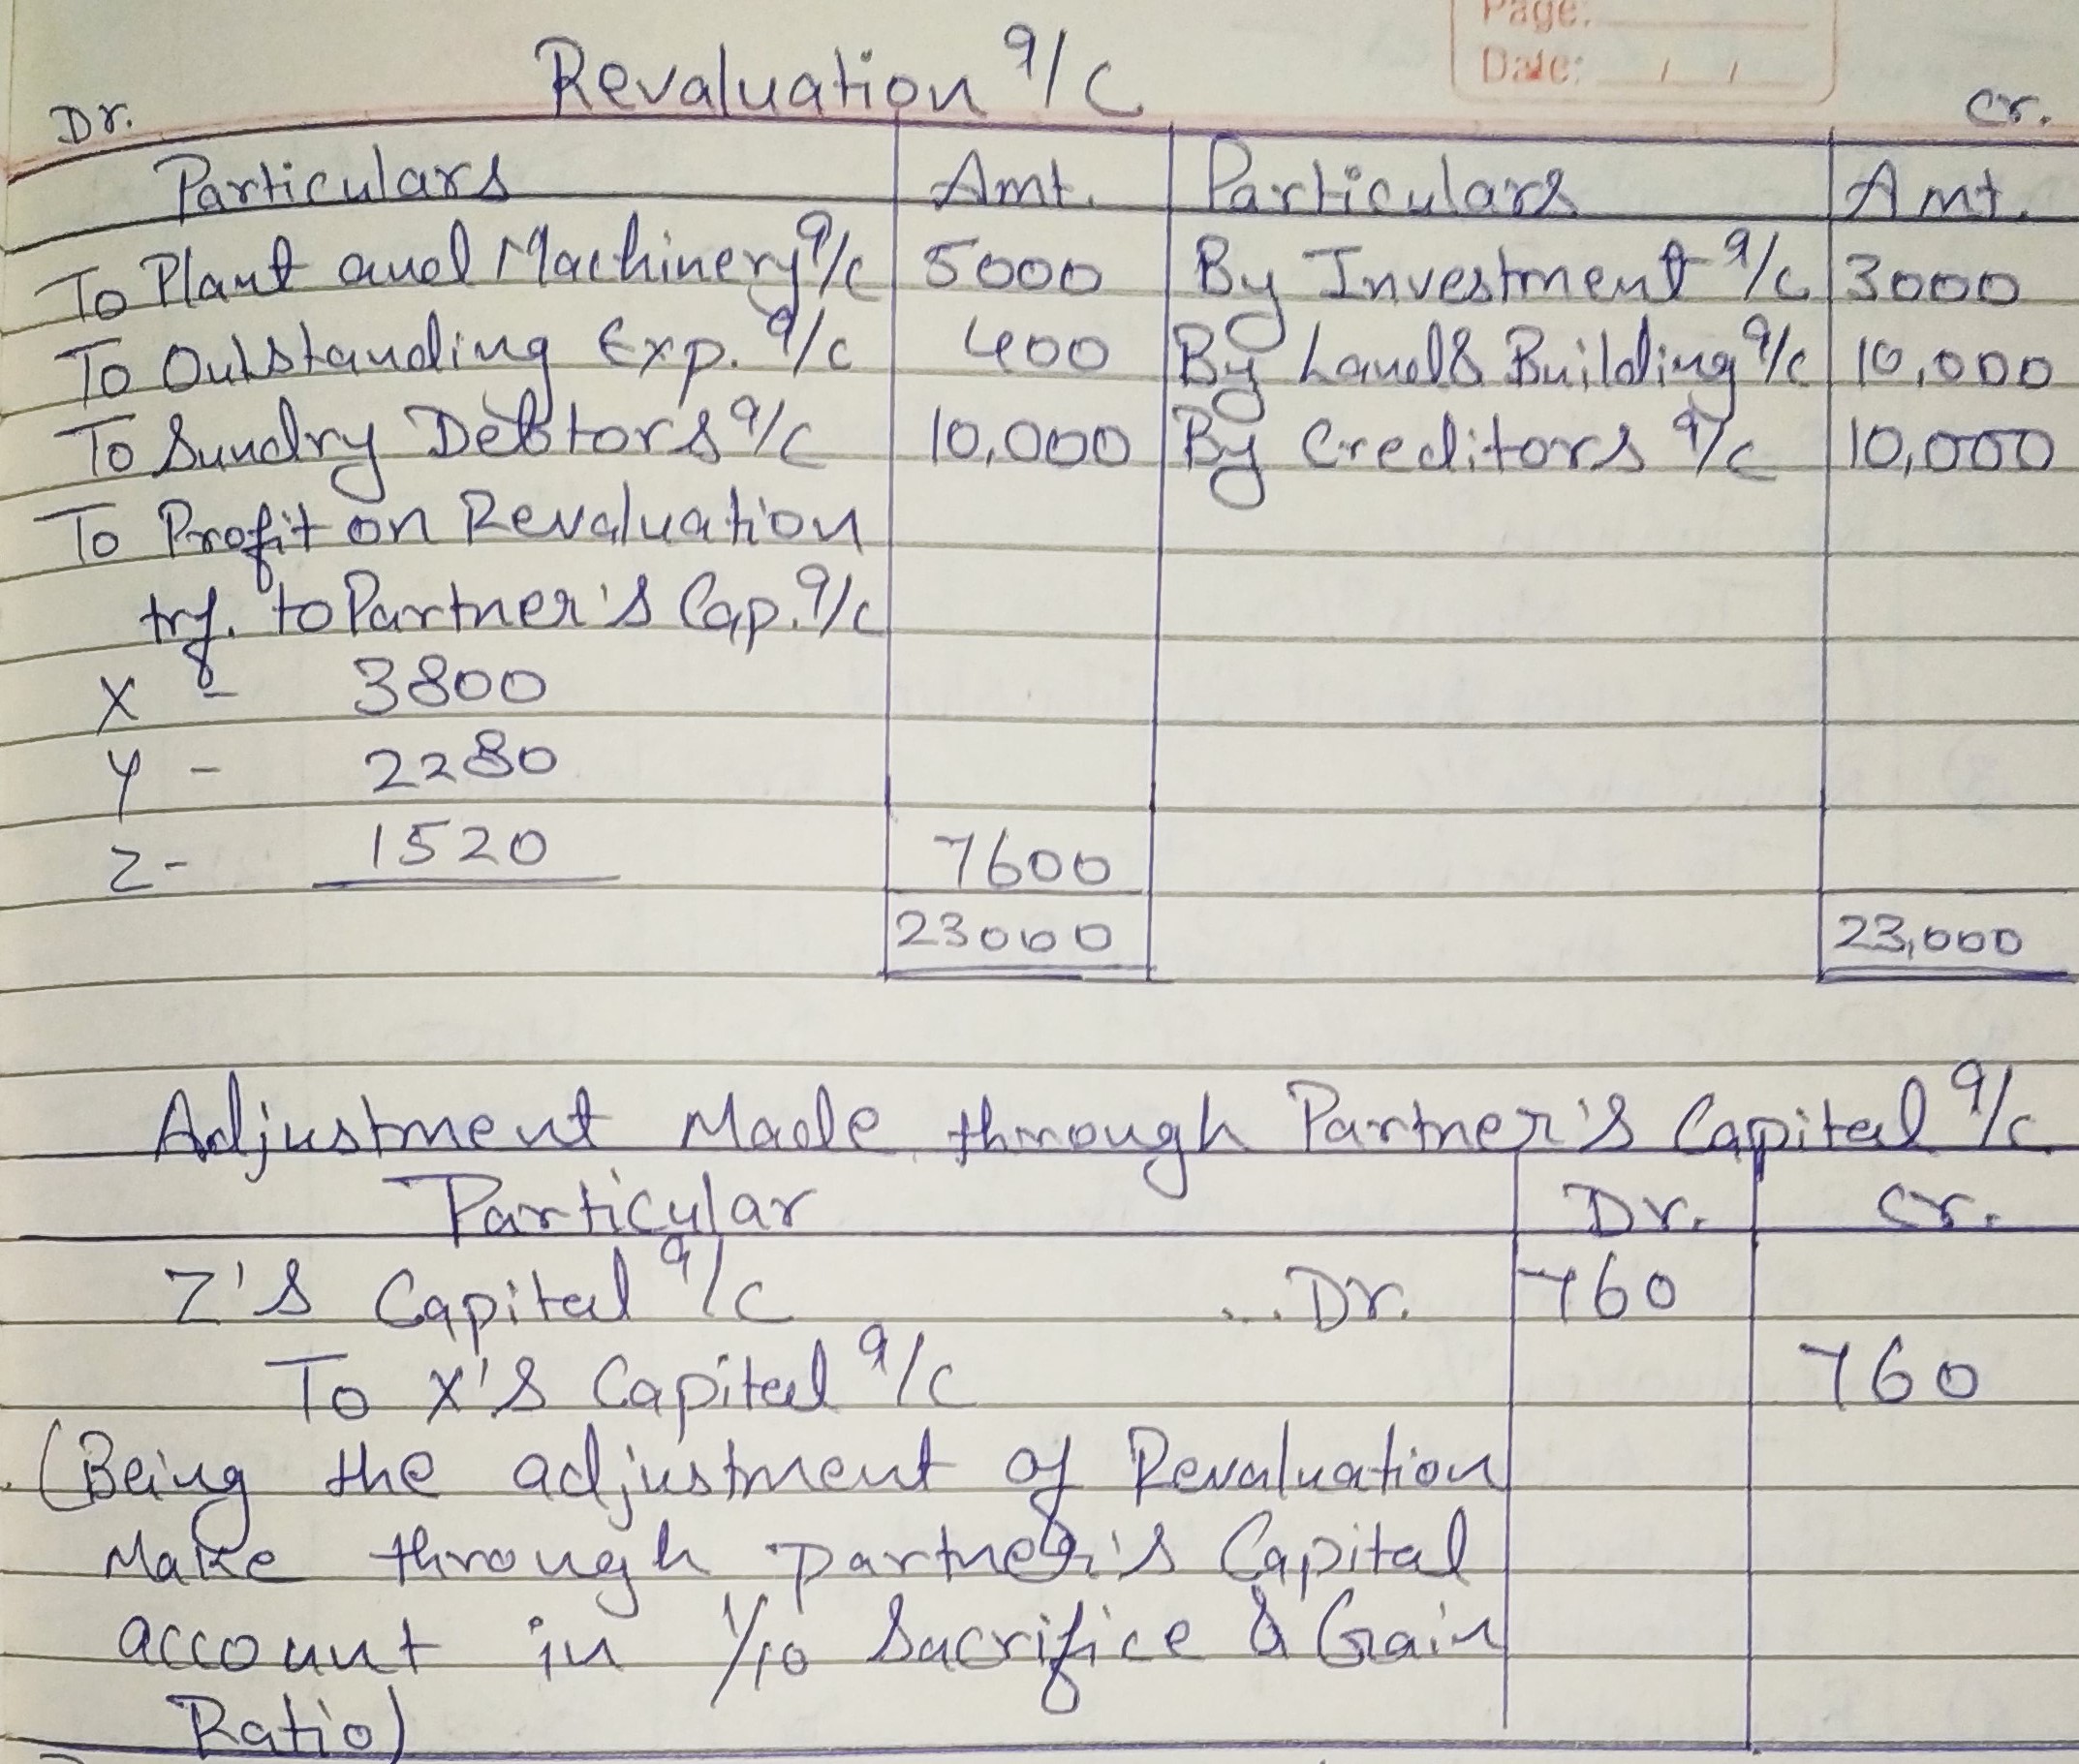 Page:
Date: / /
Revaluation a/c
Dr. Cr.
Particulars Amt. Particulars Amt.
To Plant and Machinery a/c 5000 By Investment a/c 3000
To Outstanding Exp. a/c 400 By Land & Building a/c 10,000
To Sundry Debtors a/c 10,000 By Creditors a/c 10,000
To Profit on Revaluation
trf. to Partner's Cap. a/c
X - 3800
Y - 2280
Z - 1520 7600
23000 23,000
Adjustment Made through Partner's Capital a/c
Particular Dr. Cr.
Z's Capital a/c ...Dr. 760
To X's Capital a/c 760
(Being the adjustment of Revaluation
Make through partner's Capital
account in 1/10 Sacrifice & Gain
Ratio)